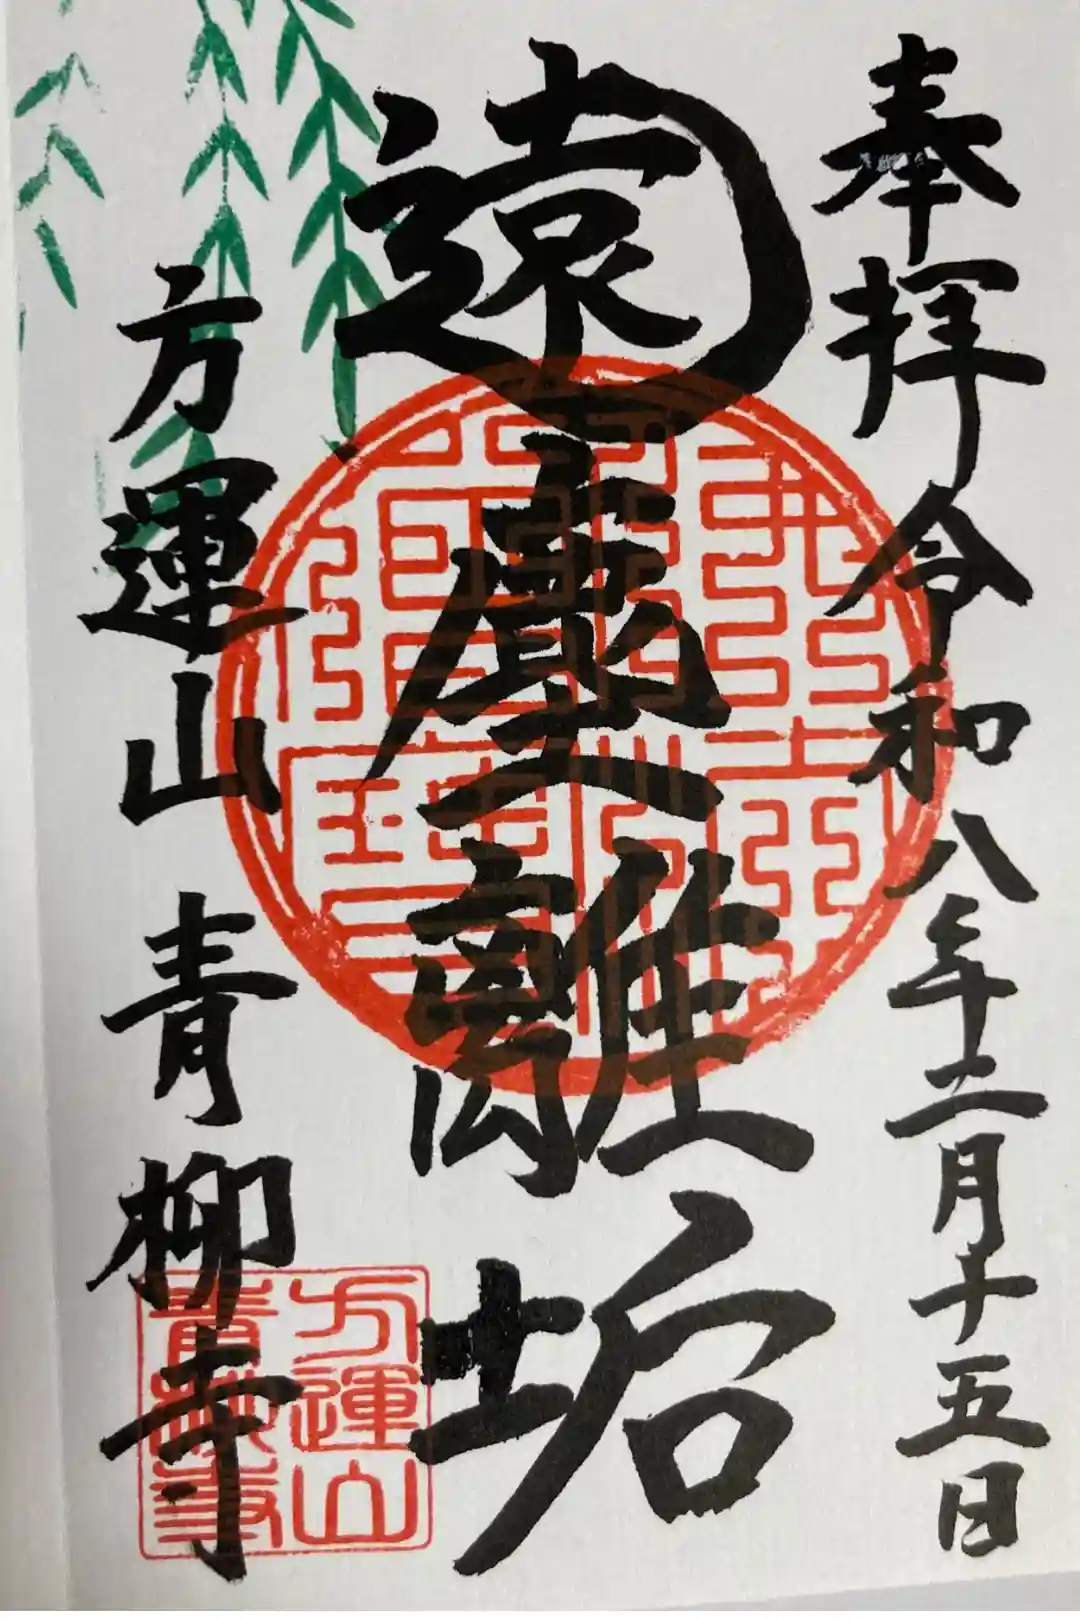 奉拝令和八年二月十五日
遠塵離垢
方運山 青柳寺
方運山
青柳寺